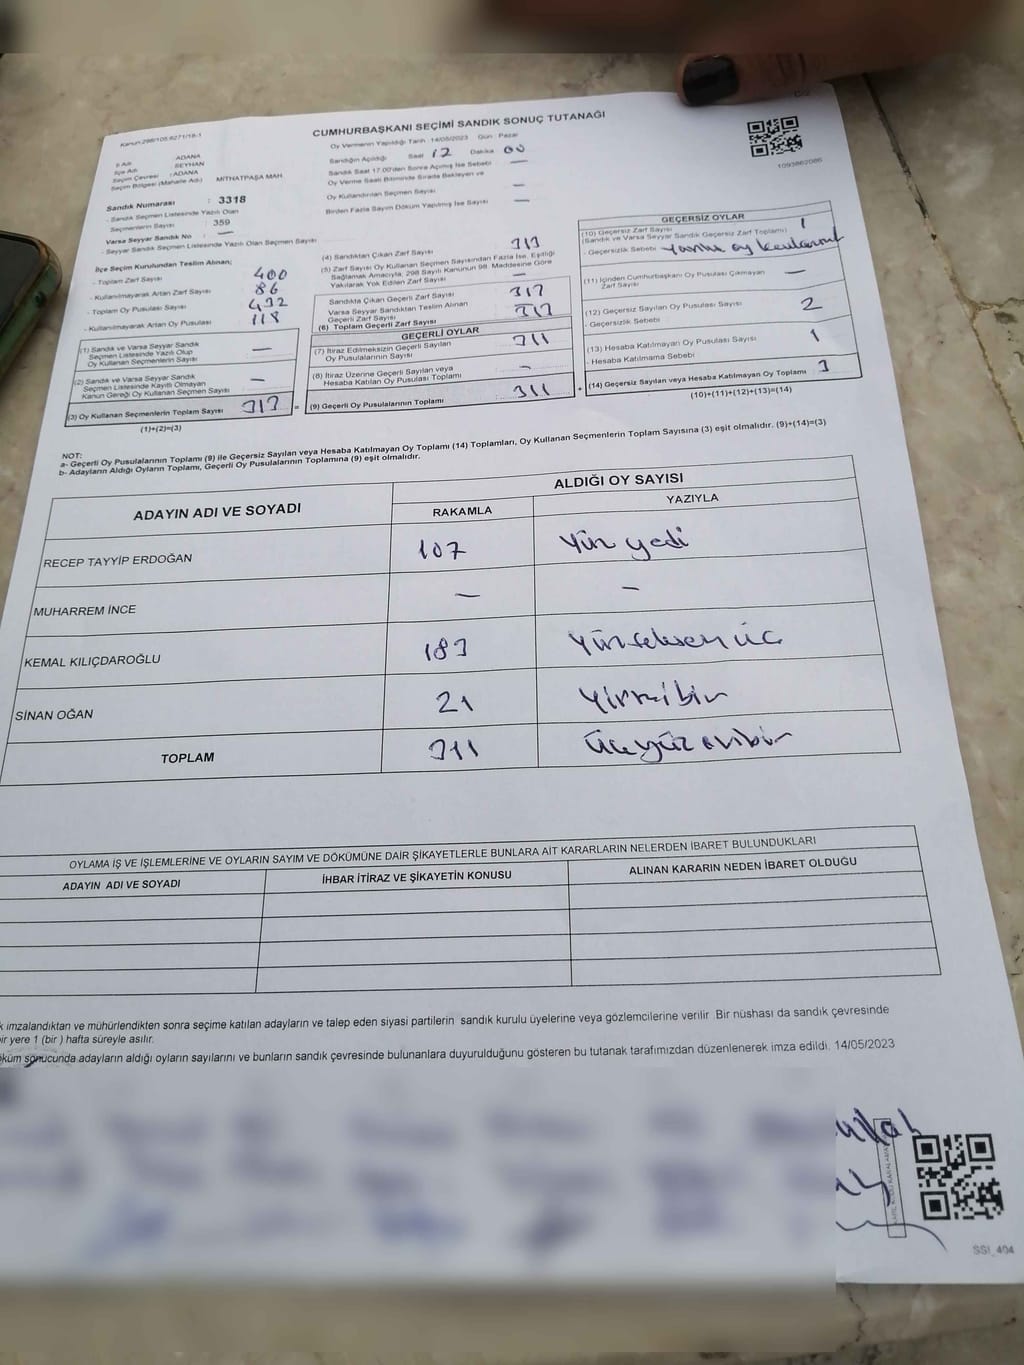 Kanun:298/105,6271/18-1
CUMHURBAŞKANI SEÇİMİ SANDIK SONUÇ TUTANAĞI
Oy Vermenin Yapıldığı Tarih 14/05/2023 Gün : Pazar
Sandığın Açıldığı Saat 12 Dakika 00
Sandık Saat 17.00'den Sonra Açılmış İse Sebebi —
Oy Verme Saati Bitiminde Sırada Bekleyen ve
Oy Kullandırılan Seçmen Sayısı —
Birden Fazla Sayım Döküm Yapılmış İse Sayısı —
1093862086
İl Adı : ADANA
İlçe Adı : SEYHAN
Seçim Çevresi : ADANA
Seçim Bölgesi (Mahalle Adı) MİTHATPAŞA MAH.
Sandık Numarası : 3318
- Sandık Seçmen Listesinde Yazılı Olan
Seçmenlerin Sayısı : 359
Varsa Seyyar Sandık No : —
- Seyyar Sandık Seçmen Listesinde Yazılı Olan Seçmen Sayısı
İlçe Seçim Kurulundan Teslim Alınan;
- Toplam Zarf Sayısı 400
- Kullanılmayarak Artan Zarf Sayısı 86
- Toplam Oy Pusulası Sayısı 432
- Kullanılmayarak Artan Oy Pusulası 118
(1) Sandık ve Varsa Seyyar Sandık
Seçmen Listesinde Yazılı Olup
Oy Kullanan Seçmenlerin Sayısı —
(2) Sandık ve Varsa Seyyar Sandık
Seçmen Listesinde Kayıtlı Olmayan
Kanun Gereği Oy Kullanan Seçmen Sayısı —
(3) Oy Kullanan Seçmenlerin Toplam Sayısı 313 =
(1)+(2)=(3)
(4) Sandıktan Çıkan Zarf Sayısı 313
(5) Zarf Sayısı Oy Kullanan Seçmen Sayısından Fazla İse, Eşitliği
Sağlamak Amacıyla, 298 Sayılı Kanunun 98. Maddesine Göre
Yakılarak Yok Edilen Zarf Sayısı —
Sandıkta Çıkan Geçerli Zarf Sayısı 317
Varsa Seyyar Sandıktan Teslim Alınan
Geçerli Zarf Sayısı
(6) Toplam Geçerli Zarf Sayısı 317
GEÇERLİ OYLAR
(7) İtiraz Edilmeksizin Geçerli Sayılan
Oy Pusulalarının Sayısı 311
(8) İtiraz Üzerine Geçerli Sayılan veya
Hesaba Katılan Oy Pusulası Toplamı -
(9) Geçerli Oy Pusulalarının Toplamı 311 +
GEÇERSİZ OYLAR
(10) Geçersiz Zarf Sayısı 1
(Sandık ve Varsa Seyyar Sandık Geçersiz Zarf Toplamı)
- Geçersizlik Sebebi oy
(11) İçinden Cumhurbaşkanı Oy Pusulası Çıkmayan
Zarf Sayısı —
(12) Geçersiz Sayılan Oy Pusulası Sayısı 2
- Geçersizlik Sebebi
(13) Hesaba Katılmayan Oy Pusulası Sayısı 1
- Hesaba Katılmama Sebebi
(14) Geçersiz Sayılan veya Hesaba Katılmayan Oy Toplamı 3
(10)+(11)+(12)+(13)=(14)
NOT:
a- Geçerli Oy Pusulalarının Toplamı (9) ile Geçersiz Sayılan veya Hesaba Katılmayan Oy Toplamı (14) Toplamları, Oy Kullanan Seçmenlerin Toplam Sayısına (3) eşit olmalıdır. (9)+(14)=(3)
b- Adayların Aldığı Oyların Toplamı, Geçerli Oy Pusulalarının Toplamına (9) eşit olmalıdır.
ADAYIN ADI VE SOYADI
ALDIĞI OY SAYISI
RAKAMLA YAZIYLA
RECEP TAYYİP ERDOĞAN 107 Yüz yedi
MUHARREM İNCE — —
KEMAL KILIÇDAROĞLU 183 Yüzseksen üç
SİNAN OĞAN 21 Yirmibir
TOPLAM 311 Üçyüz onbir
OYLAMA İŞ VE İŞLEMLERİNE VE OYLARIN SAYIM VE DÖKÜMÜNE DAİR ŞİKAYETLERLE BUNLARA AİT KARARLARIN NELERDEN İBARET BULUNDUKLARI
ADAYIN ADI VE SOYADI İHBAR İTİRAZ VE ŞİKAYETİN KONUSU ALINAN KARARIN NEDEN İBARET OLDUĞU
k imzalandıktan ve mühürlendikten sonra seçime katılan adayların ve talep eden siyasi partilerin sandık kurulu üyelerine veya gözlemcilerine verilir Bir nüshası da sandık çevresinde
ir yere 1 (bir ) hafta süreyle asılır.
öküm sonucunda adayların aldığı oyların sayılarını ve bunların sandık çevresinde bulunanlara duyurulduğunu gösteren bu tutanak tarafımızdan düzenlenerek imza edildi. 14/05/2023
SSI_404